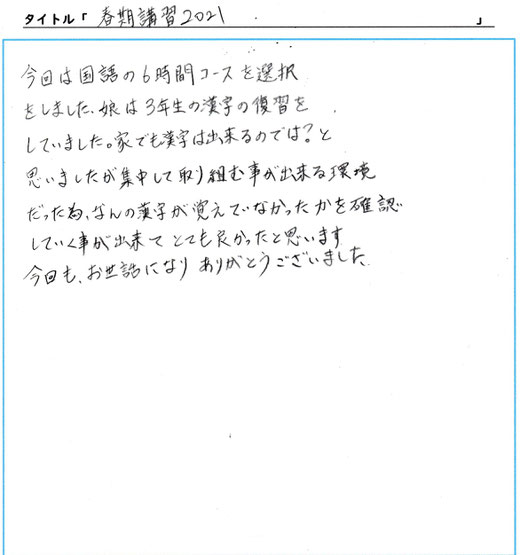 タイトル「 春期講習2021 」
今回は国語の6時間コースを選択
をしました、娘は3年生の漢字の復習を
していました。家でも漢字は出来るのでは?と
思いましたが集中して取り組む事が出来る環境
だった為、なんの漢字が覚えていなかったかを確認
していく事が出来てとても良かったと思います
今回も、お世話になりありがとうございました。